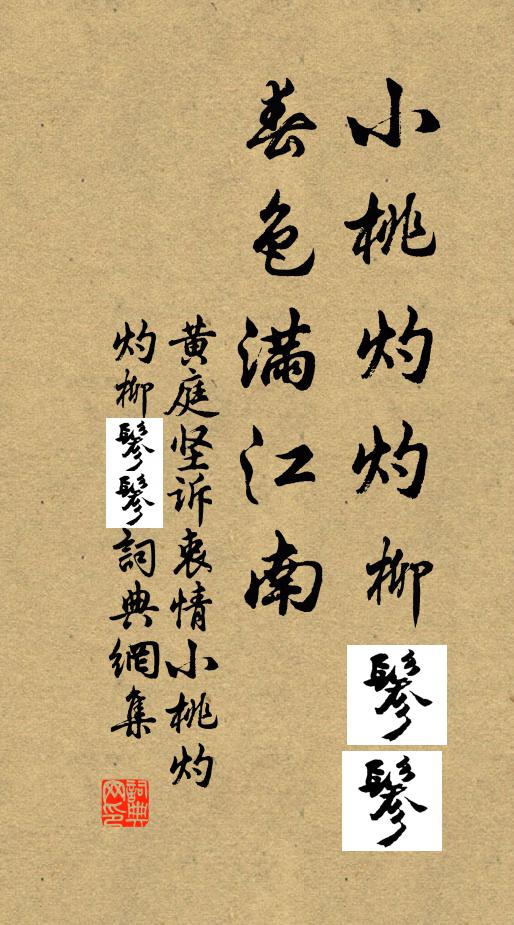 小桃灼灼柳鬖鬖
春色满江南
黄庭坚诉衷情小桃灼
灼柳鬖鬖詞典網集
詞典
网印